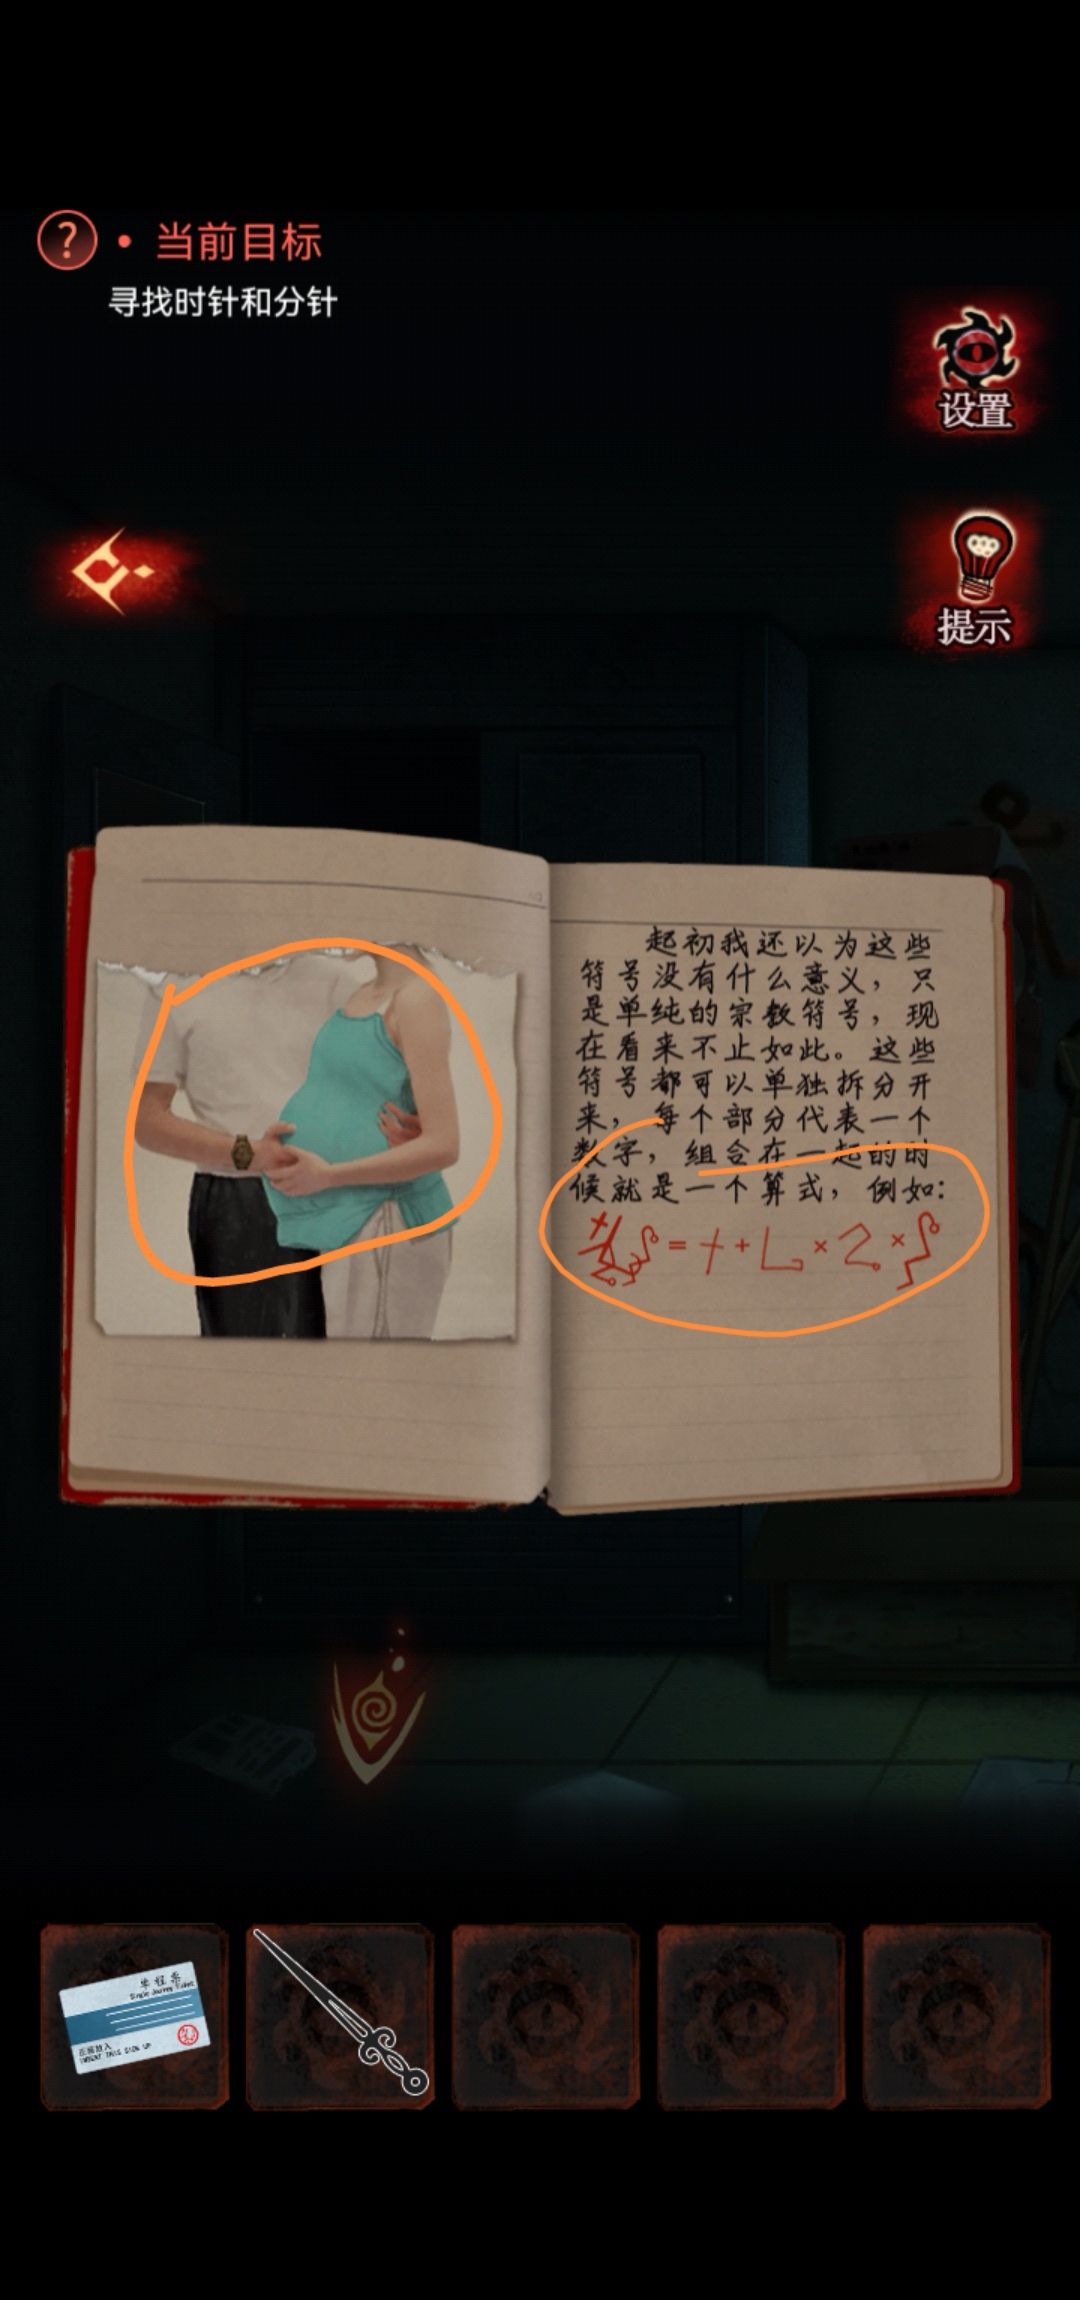 当前目标
寻找时针和分针
设置
提示
起初我还以为这些
符号没有什么意义，只
是单纯的宗教符号，现
在看来不止如此。这些
符号都可以单独拆分开
来，每个部分代表一个
数字，组合在一起的时
候就是一个算式，例如：
单程票
Single Journey Ticket
INSERT THIS SIDE UP